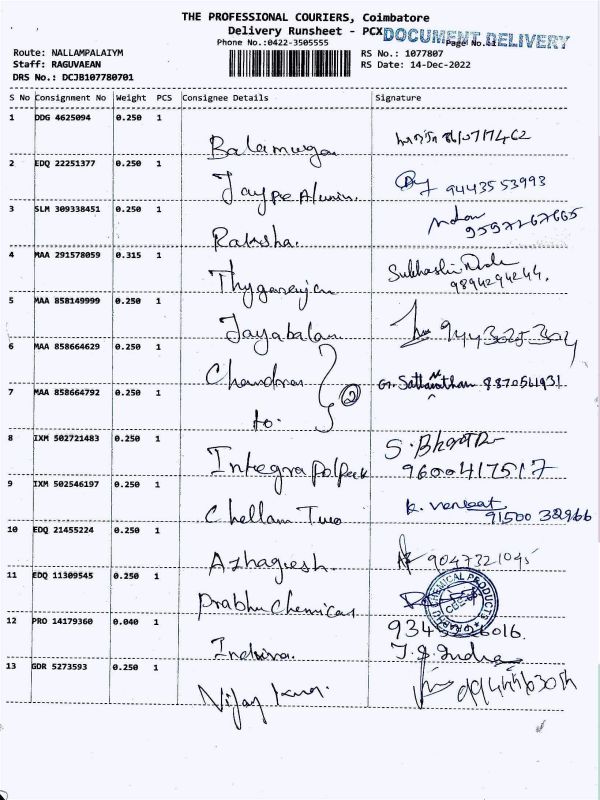 THE PROFESSIONAL COURIERS, Coimbatore
Delivery Runsheet - PCX DOCUMENT DELIVERY
Phone No.:0422-3505555 Page No.
Route: NALLAMPALAIYM RS No.: 1077807
Staff: RAGUVAEAN RS Date: 14-Dec-2022
DRS No.: DCJB107780701
S No Consignment No Weight PCS Consignee Details Signature
1 DDG 4625094 0.250 1
Balamuruga
2 EDQ 22251377 0.250 1
Jaype Alumin. 9443553993
3 SLM 309338451 0.250 1
Raksha. 9597267665
4 MAA 291578059 0.315 1
Thygarajan 9894294244.
5 MAA 858149999 0.250 1
Jayabalan 9443025304
6 MAA 858664629 0.250 1
Chandran 2 G. 8870561931
7 MAA 858664792 0.250 1
to.
8 IXM 502721483 0.250 1
S. Bharathi
Integra Polpack 9600417517
9 IXM 502546197 0.250 1
Chellam Two K. Venkat
91500 32966
10 EDQ 21455224 0.250 1
Azhagesh. 9047321045
11 EDQ 11309545 0.250 1
Prabhu Chemicas PRABHU CHEMICAL PRODUCTS
12 PRO 14179360 0.040 1
Indira. J.S. Indra
13 GDR 5273593 0.250 1
Vijay Kumar